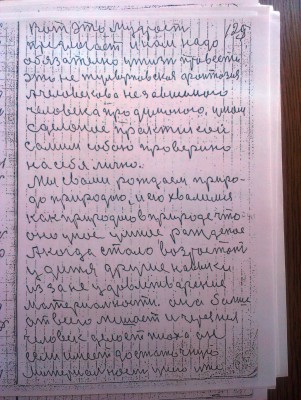 вот это мудрост 125
предлогает и нам надо
обязателно и жизн провести
это не жулверновская фонтозия
а человека независимого
человека продуманого, умом
сделоное практической
самим собою проверино
на себя лично.
Мы с вами рождаем природо
природно, и его хвалимся
как природно в природе что-
оно умное рождение
А когда стало возростат
и дитя другие нашлики
из за не удовлетворение
материалности. она более
от всего мешает и через неё
человек делает плохо он
если имеет достаточную
материалност у него уже